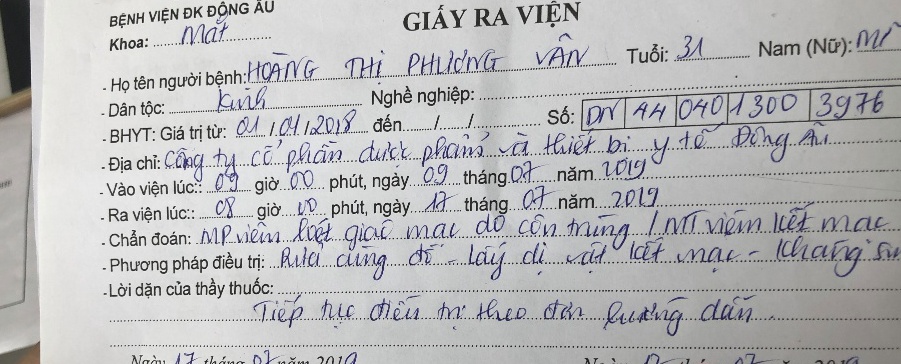 BỆNH VIỆN ĐK ĐÔNG ÂU
GIẤY RA VIỆN
Khoa: Mắt
- Họ tên người bệnh: HOÀNG THỊ PHƯƠNG VÂN Tuổi: 31 Nam (Nữ): Nữ
- Dân tộc: Kinh Nghề nghiệp:
- BHYT: Giá trị từ: 01/01/2018 đến / / Số: DN 44 040 1300 3976
- Địa chỉ: Công ty cổ phần dược phẩm và thiết bị y tế Đông Âu
- Vào viện lúc: 09 giờ 00 phút, ngày 09 tháng 07 năm 2019
- Ra viện lúc: 08 giờ 00 phút, ngày 17 tháng 07 năm 2019
- Chẩn đoán: MP viêm loét giác mạc do côn trùng / MT viêm kết mạc
- Phương pháp điều trị: Rửa cùng đồ - lấy dị vật kết mạc - kháng
- Lời dặn của thầy thuốc:
Tiếp tục điều trị theo đơn hướng dẫn.
Ngày 17 tháng 07 năm 2019